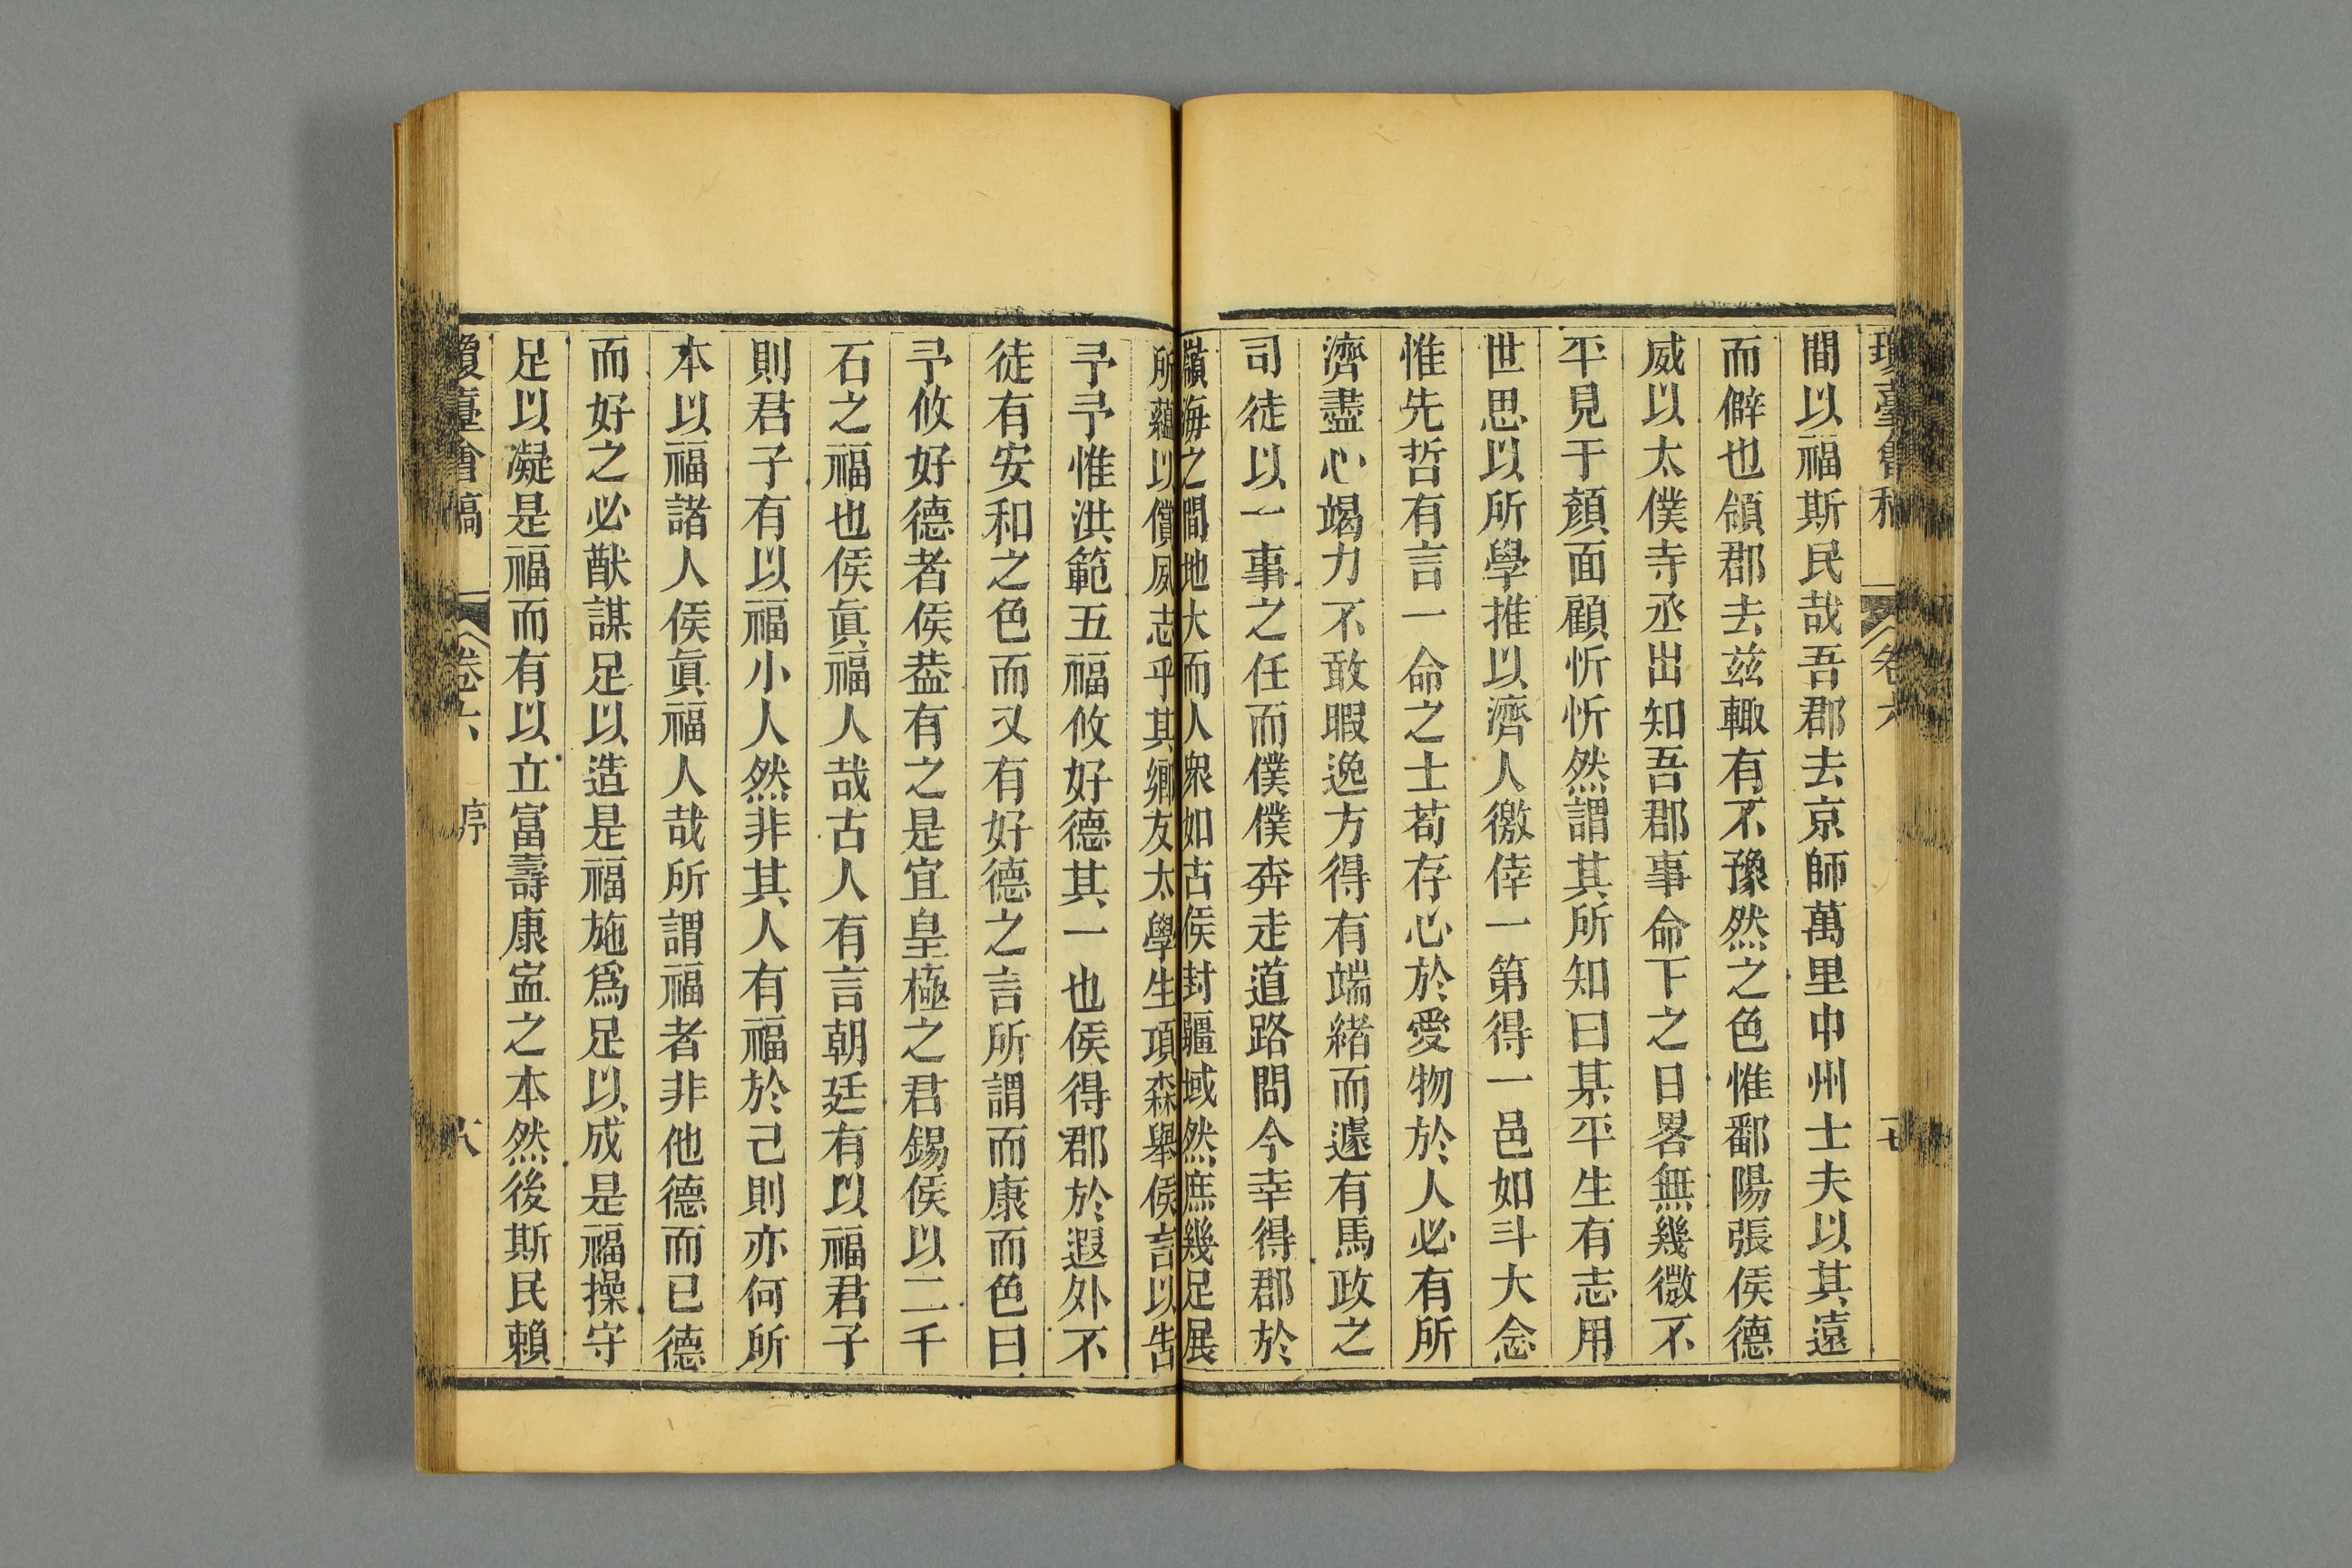 瓊臺會稿 卷六 十七
間以福斯民哉吾郡去京師萬里中州士夫以其遠
而僻也領郡去兹輙有不豫然之色惟鄱陽張侯德
威以太僕寺丞出知吾郡事命下之日畧無幾微不
平見于顏面顧忻忻然謂其所知曰某平生有志用
世思以所學推以濟人徼倖一第得一邑如斗大念
惟先哲有言一命之士茍存心於愛物於人必有所
濟盡心竭力不敢暇逸方得有端緒而遽有馬政之
司徒以一事之任而僕僕奔走道路間今幸得郡於
嶺海之間地大而人衆如古侯封疆域然庶幾足展
所蘊以償夙志乎其鄉友太學生項森舉侯言以告
予予惟洪範五福攸好德其一也侯得郡於遐外不
徒有安和之色而又有好德之言所謂而康而色曰
予攸好德者侯葢有之是宜皇極之君錫侯以二千
石之福也侯眞福人哉古人有言朝廷有以福君子
則君子有以福小人然非其人有福於己則亦何所
本以福諸人侯眞福人哉所謂福者非他德而已德
而好之必猷謀足以造是福施爲足以成是福操守
足以凝是福而有以立富壽康寍之本然後斯民賴
瓊臺會稿 卷六 序 十八